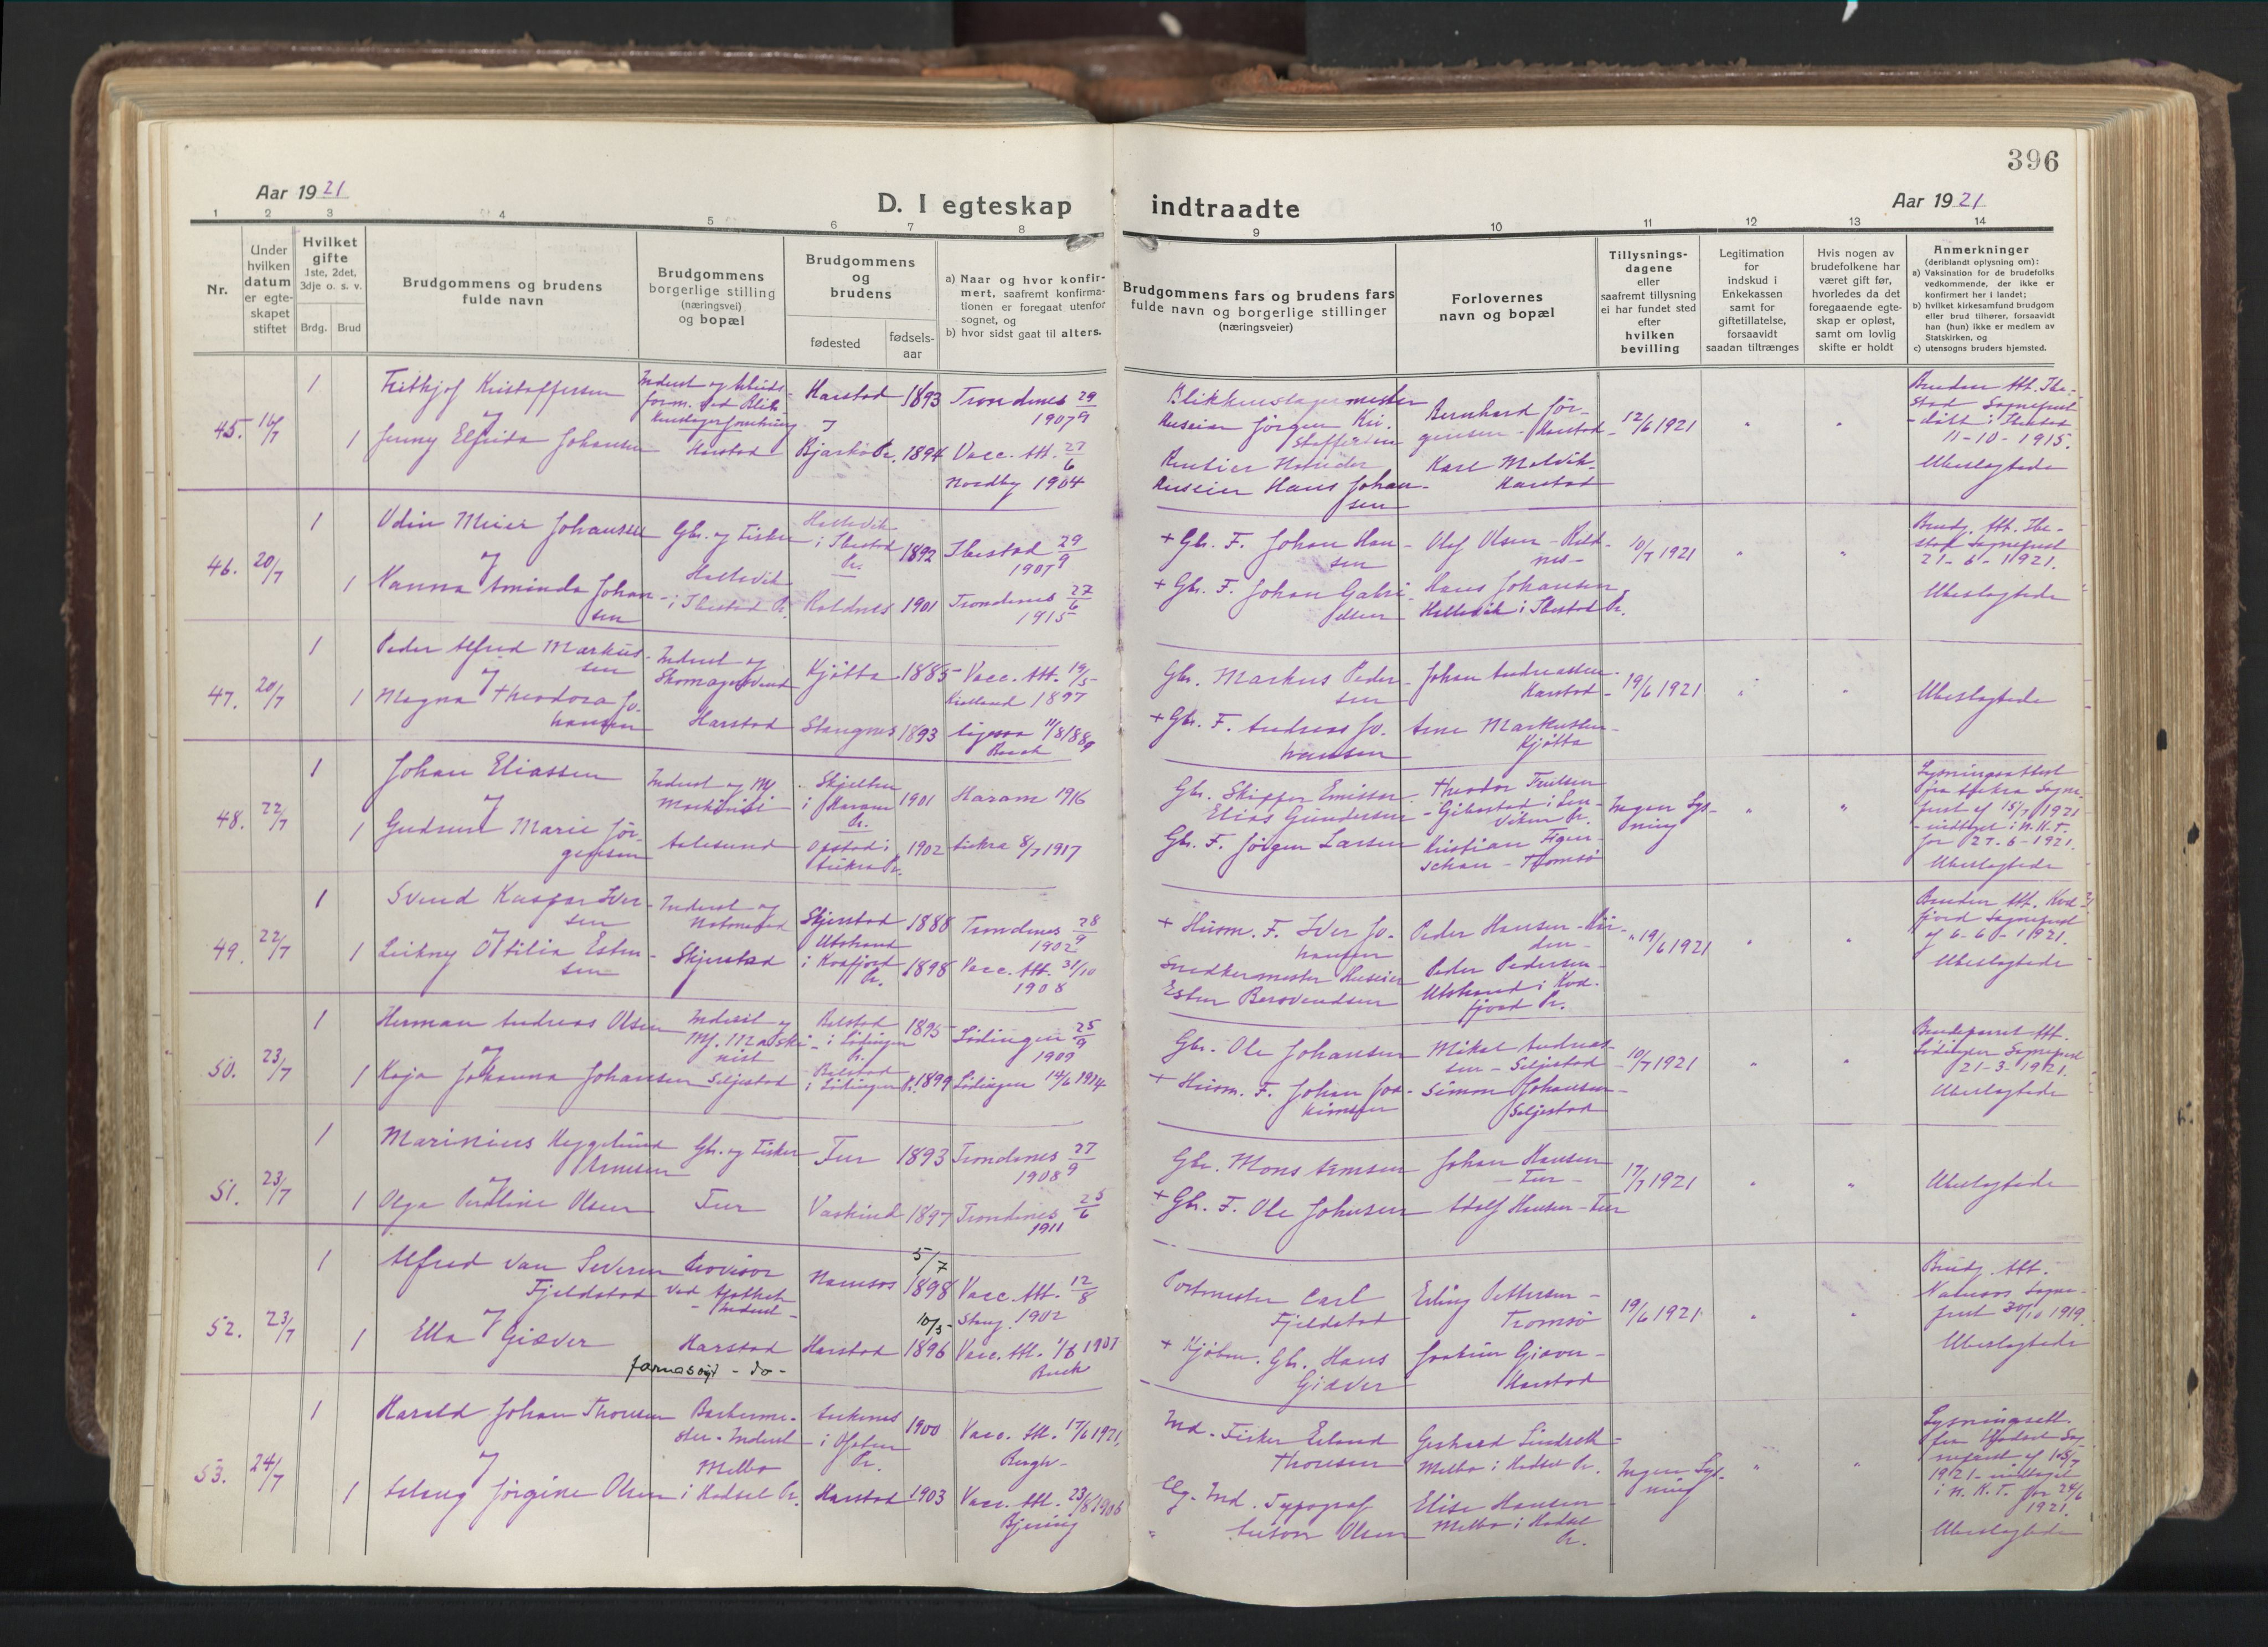 396
Aar 1921
D. I egteskap
indtraadte
Aar 1921
1 2 3 4 5 6 7 8 9 10 11 12 13 14
Nr.
Under
hvilken
datum
er egte-
skapet
stiftet
Hvilket
gifte
1ste, 2det,
3dje o. s. v.
Brdg. Brud
Brudgommens og brudens
fulde navn
Brudgommens
borgerlige stilling
(næringsvei)
og bopæl
Brudgommens
og
brudens
fødested
fødsels-
aar
a) Naar og hvor konfir-
mert, saafremt konfirma-
tionen er foregaat utenfor
sognet, og
b) hvor sidst gaat til alters.
Brudgommens fars og brudens fars
fulde navn og borgerlige stillinger
(næringsveier)
Forlovernes
navn og bopæl
Tillysnings-
dagene
eller
saafremt tillysning
ei har fundet sted
efter
hvilken
bevilling
Legitimation
for
indskud i
Enkekassen
samt for
giftetillatelse,
forsaavidt
saadan tiltrænges
Hvis nogen av
brudefolkene har
været gift før,
hvorledes da det
foregaaende egte-
skap er opløst,
samt om lovlig
skifte er holdt
Anmerkninger
(deriblandt oplysning om):
a) Vaksination for de brudefolks
vedkommende, der ikke er
konfirmert her i landet;
b) hvilket kirkesamfund brudgom
eller brud tilhører, forsaavidt
han (hun) ikke er medlem av
Statskirken, og
c) utensogns bruders hjemsted.
45. 16/7
1
1
Frithjof Kristoffersen
Jenny Elfrida Johansen
Harstad
Harstad 1893
Bjarkø Pr. 1894
Trondenes 29/9
1907
Vacc. Att. 27/6
Nordby 1904
Blikkenslagermester
Huseier Jørgen Kri-
stoffersen
Rentier
Huseier Hans Johan-
sen
Bernhard Jør-
gensen - Harstad
Karl Melvik
Harstad
12/6 1921
Bruden Att. Ibe-
stad Sogneprest
11-10-1915.
Ubeslægtede
46. 20/7
1
1
Odin Meier Johansen
Nanna Aminda Johan-
sen
Gbr. og Fisker
Hallevik
i Ibestad Pr.
Hallevik
i Ibestad
Pr.
1892
Roldnes 1901
Ibestad 29/9
1907
Trondenes 27/6
1915
+ Gbr. F. Johan Han-
sen
+ Gbr. F. Johan Gabri-
elsen
Olaf Olsen - Rold-
nes
Hans Johansen
Hallevik i Ibestad Pr.
10/7 1921
Brudg. Att. Ibe-
stad Sogneprest
21-6-1921.
Ubeslægtede
47. 20/7
1
1
Peder Alfred Markus-
sen
Magna Theodora Jo-
hansen
Inderst og
Skomagersvend
Harstad
Kjøtta 1885
Stangnes 1893
Vacc. Att. 19/5
Kielland 1897
11/8 1889
Gbr. Markus Peder-
sen
+ Gbr. F. Andreas Jo-
hansen
Johan Andreassen
Harstad
Arne Markussen
Kjøtta
19/6 1921
Ubeslægtede
48. 22/7
1
1
Johan Eliassen
Gudrun Marie Jør-
gensen
Inderst og Mj.
Maskinist
Aalesund
Skjelten
i Haram
Pr.
1901
Opstad i
Aukra Pr.
1902
Haram 1916
Aukra 8/7 1917
Gbr. Skipper Emissær
Elias Gundersen
Gbr. F. Jørgen Larsen
Theodor
Gibostad i Len-
viken Pr.
Kristian Figen-
schau - Tromsø
Ingen Lys-
ning
Lysningsattest
fra Aukra Sogne-
prest af 15/7 1921
- indtaget i N. K. T.
for 27-6-1921.
Ubeslægtede
49. 22/7
1
1
Svend Kaspar Iver-
sen
Leikny Ottilia Esten-
sen
Inderst og
Skjerstad
Skjerstad 1888
Utstrand
i Kvæfjord
Pr.
1898
Trondenes 28/9
1902
Vacc. Att. 31/10
1908
+ Husm. F. Iver Jo-
hansen
Snedkermester Huseier
Esten Berovendsen
Peder Hansen
Peder Pedersen
Utstrand i Kvæ-
fjord Pr.
19/6 1921
Bruden Att. Kvæ-
fjord Sogneprest
af 6-6-1921.
Ubeslægtede
50. 23/7
1
1
Herman Andreas Olsen
og
Kaja Johanna Johansen
Inderst og
Mj. Maski-
nist
Seljestad
i Lødingen
Pr.
1895
i Lødingen Pr. 1899
Lødingen 25/9
1909
Lødingen 14/6 1914
Gbr. Ole Johansen
+ Husm. F. Johan Joa-
kimsen
Mikal Andreas-
sen - Seljestad
Simon Johansen
Seljestad
10/7 1921
Brudeparret Att.
Lødingen Sogneprest
21-3-1921.
Ubeslægtede
51. 23/7
1
1
Marinius Heggelund
Arnesen
Olga Perdtine Olsen
Gbr. og Fisker
Tur
Tur 1893
Vaskind 1897
Trondenes 27/9
1908
Trondenes 25/6
1911
Gbr. Mons Arnesen
+ Gbr. F. Ole Johnsen
Johan Hansen
- Tur -
Adolf Hansen - Tur
17/7 1921
Ubeslægtede
52. 23/7
1
1
Alfred van Severen
Fjeldstad
Ella Giæver
Provisor
ved Apothek
- Inderst -
Harstad
- do -
Namsos
5/7
1898
Harstad
10/5
1896
Vacc. Att. 12/8
1902
Vacc. Att. 1/6 1901
Buck
Postmester Carl
Fjeldstad
+ Kjøbm. Gbr. Hans
Giæver
Erling Pettersen -
Tromsø
Joakim Giæver -
Harstad
19/6 1921
Brudg. Att.
Namsos Sogne-
prest 30/10 1919.
Ubeslægtede
53. 24/7
1
1
Harald Johan Thoresen
Aslaug Jørgine Olsen
Barberme-
ster - Inderst
Melbo
i Hadsel Pr.
Ankenes
i Ofoten
Pr.
1900
Harstad 1903
Vacc. Att. 17/6 1921,
Bergh
Vacc. Att. 23/8 1906
Bjering
Ind. Fisker Erland
Thoresen
Ind. Typograf
Anton Olsen
Gerhard Lindseth
Melbo i Hadsel Pr.
Elise Hansen
Melbo i Hadsel
Pr.
Ingen Lys-
ning
Lysningsatt.
fra Hadsel Sog-
neprest af 16/7
1921 - indtaget
i N. K. T. for 24/6
1921.
Ubeslægtede